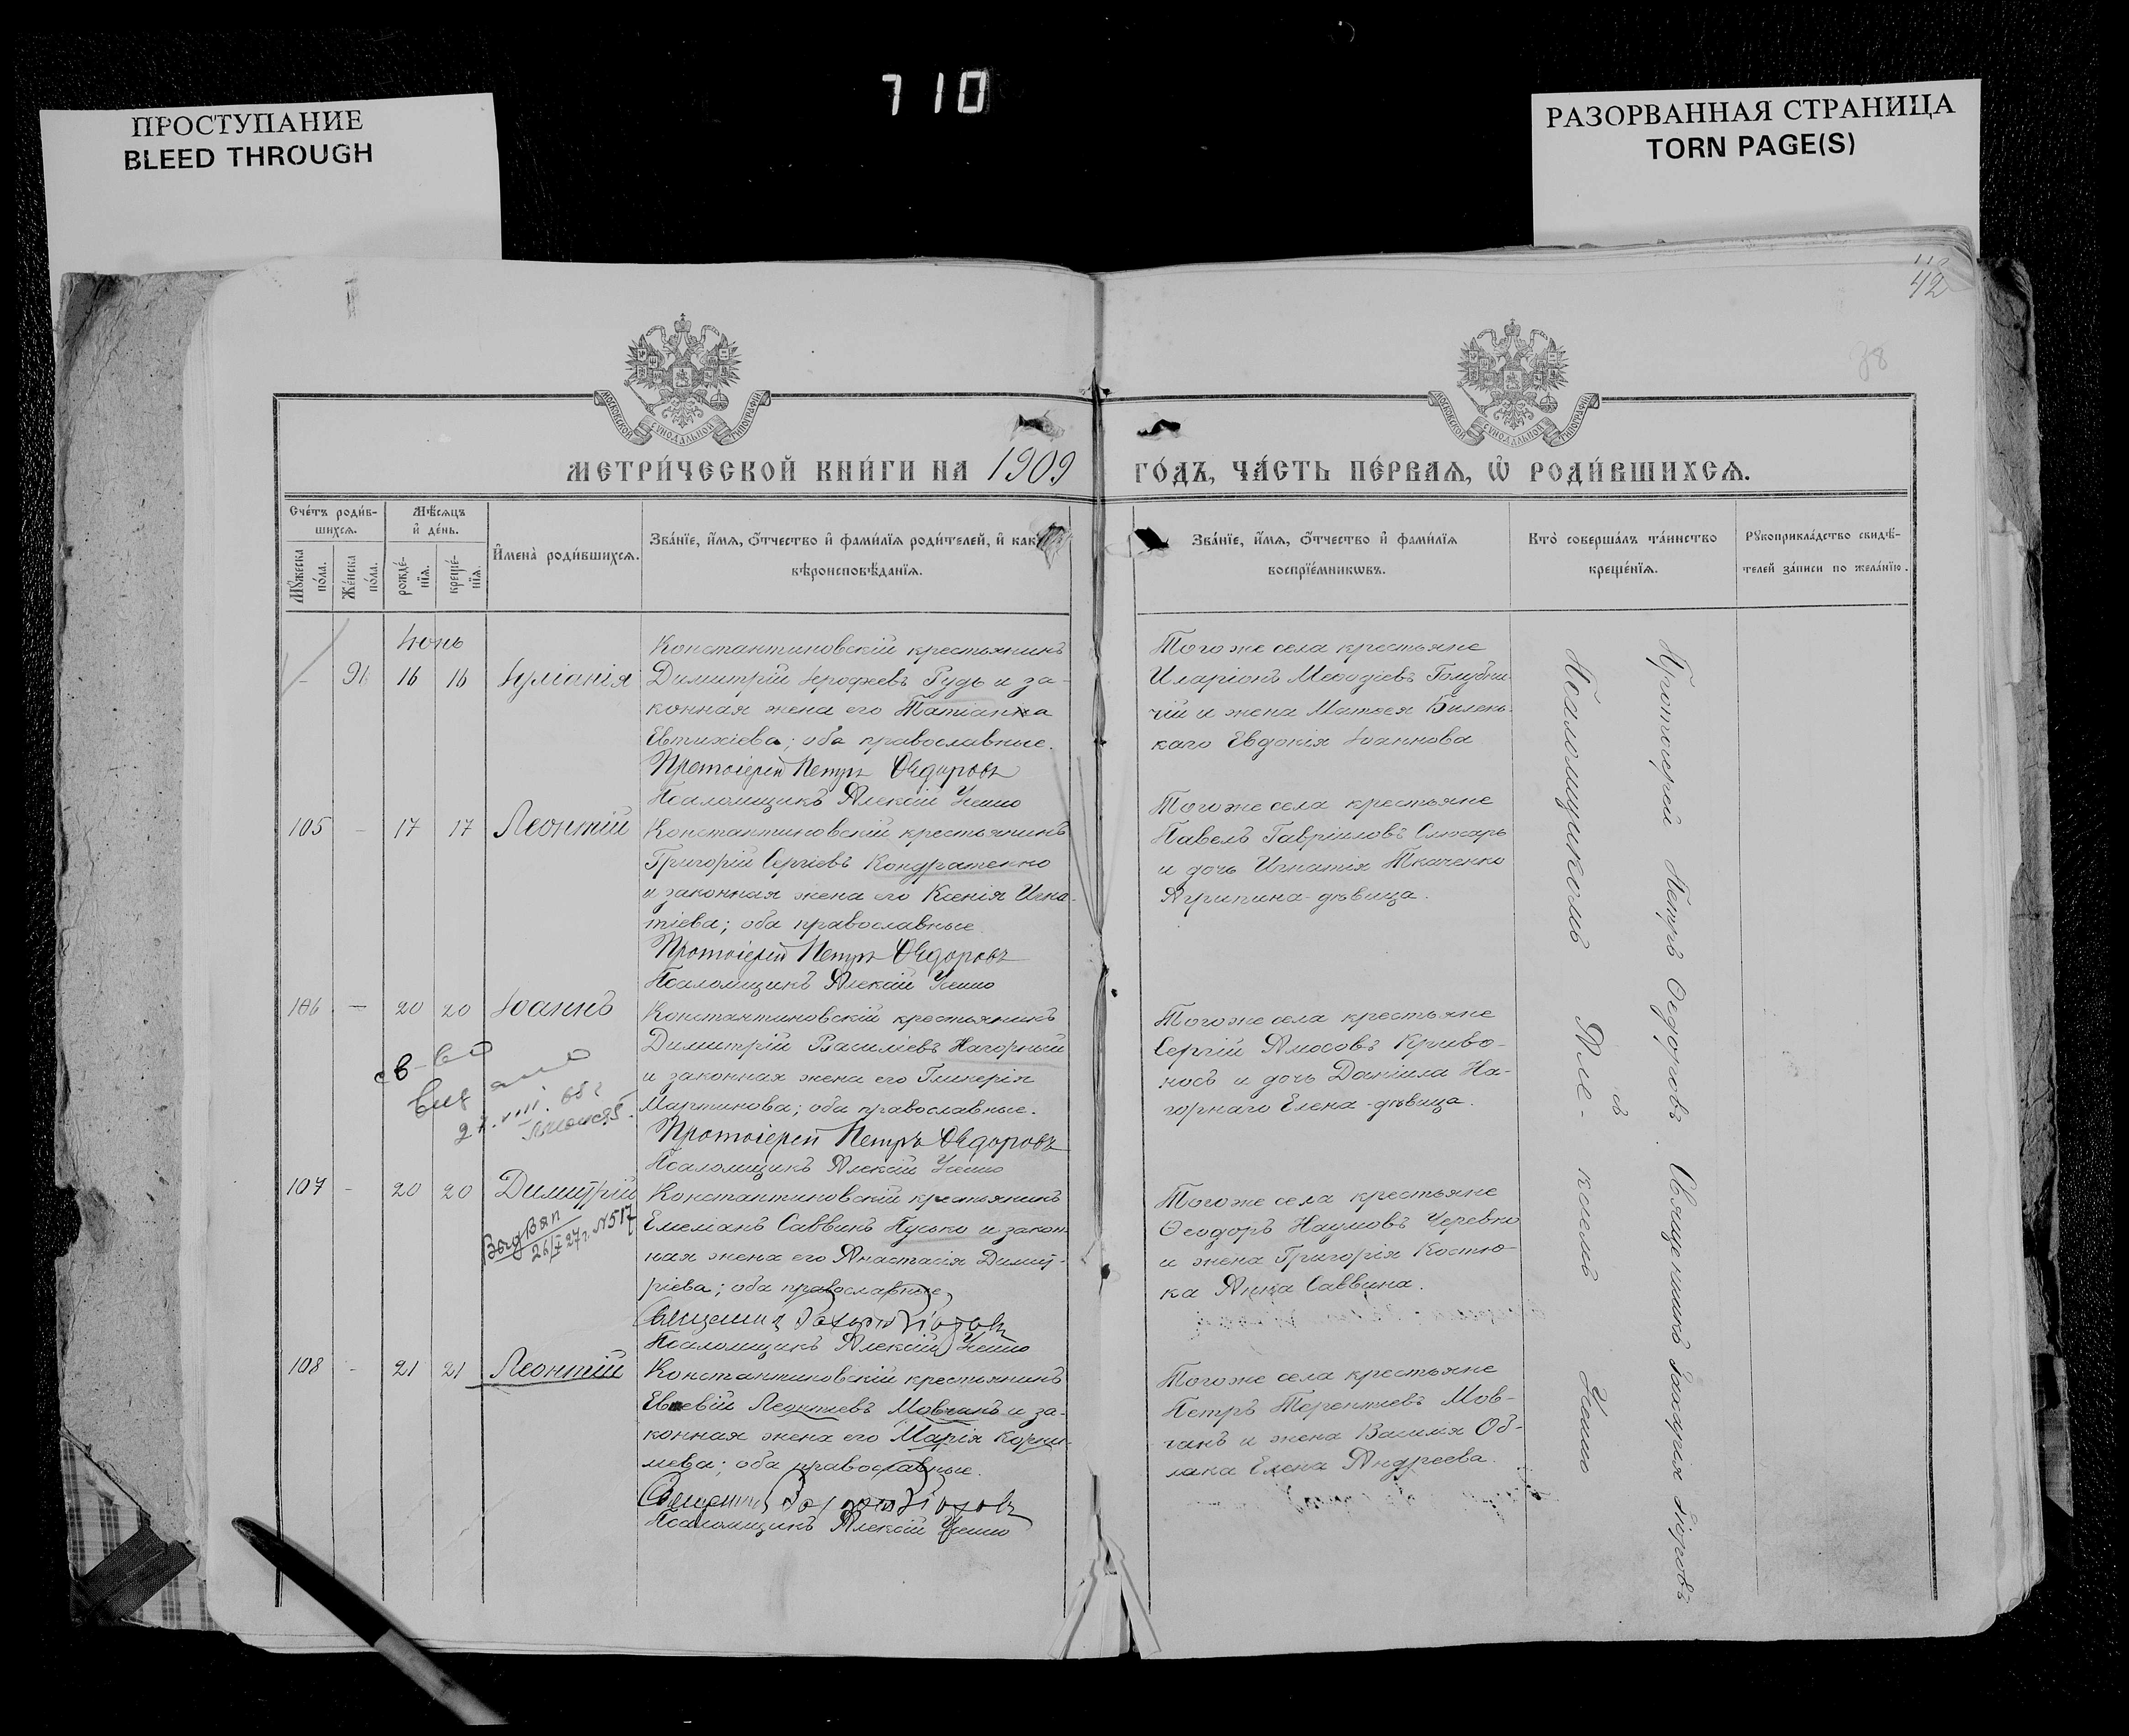 710
ПРОСТУПАНИЕ
BLEED THROUGH
РАЗОРВАННАЯ СТРАНИЦА
TORN PAGE(S)
42
38
МОСКОВСКОЙ СУНОДАЛЬНОЙ ТИПОГРАФІИ
МОСКОВСКОЙ СУНОДАЛЬНОЙ ТИПОГРАФІИ
МЕТРИ́ЧЕСКОЙ КНИ́ГИ НА 1909 ГО́ДЪ, ЧА́СТЬ ПЕ́РВАѦ, Ѡ҆ РОДИ́ВШИХСѦ.
Сче́тъ роди́в-
шихсѧ.
Мѣ́сѧцъ
и҆ де́нь.
Мꙋ́жеска
по́ла.
Же́нска
по́ла.
рожде́-
нїѧ.
креще́-
нїѧ.
И҆мена̀ роди́вшихсѧ.
Зва́нїе, и҆́мѧ, ѻ҆́тчество и҆ фами́лїѧ роди́телей, и҆ как
вѣроисповѣ́данїѧ.
Зва́нїе, и҆́мѧ, ѻ҆́тчество и҆ фами́лїѧ
воспрїе́мникѡвъ.
Кто̀ соверша́лъ та́инство
креще́нїѧ.
Рꙋкоприкла́дство свидѣ́-
телей за́писи по жела́нїю.
Іюнь
- 91 16 16 Іуліанія
Константиновскій крестьянинъ
Димитрій Іерофеевъ Рудь и за-
конная жена его Татіанна
Евтихіева; оба православные.
Протоіерей Петръ Ѳедоровъ
Псаломщикъ Алексій
Того же села крестьяне
Иларіонъ Меѳодіевъ Голубни-
чій и жена Матѳея Билень-
каго Евдокія Іоаннова
105 - 17 17 Леонтій
Константиновскій крестьянинъ
Григорій Сергіевъ Кондратенко
и законная жена его Ксенія Игна-
тіева; оба православные.
Протоіерей Петръ Ѳедоровъ
Псаломщикъ Алексій
Того же села крестьяне
Павелъ Гавріиловъ Слюсарь
и дочь Игнатія Ткаченко
Агрипина-дѣвица.
106 - 20 20 Іоаннъ
св-во
выдано
27.VIII.
Константиновскій крестьянинъ
Димитрій Василіевъ Нагорный
и законная жена его Гликерія
Мартинова; оба православные.
Протоіерей Петръ Ѳедоровъ
Псаломщикъ Алексій
Того же села крестьяне
Сергій Амосовъ Криво-
носъ и дочь Даніила На-
горнаго Елена-дѣвица.
107 - 20 20 Димитрій
26/I 27г. N517
Константиновскій крестьянинъ
Емеліанъ Саввинъ Пусько и закон-
ная жена его Анастасія Димит-
ріева; оба православные.
Псаломщикъ Алексій
Того же села крестьяне
Ѳеодоръ Наумовъ Черевко
и жена Григорія Костю-
ка Анна Саввина.
108 - 21 21 Леонтій
Константиновскій крестьянинъ
Леонтіевъ Мовчанъ и за-
конная жена его Марія Корни-
лиева; оба православные.
Псаломщикъ Алексій
Того же села крестьяне
Петръ Терентіевъ Мов-
чанъ и жена Василія Об-
лака Елена Андреева.
Протоіерей Петръ Ѳеодоровъ. Священникъ Захарія
съ
Псаломщикомъ Але-ксіемъ